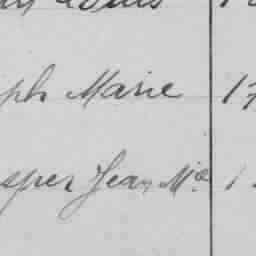 Louis
ph Marie 17
sper Jean Mie 1